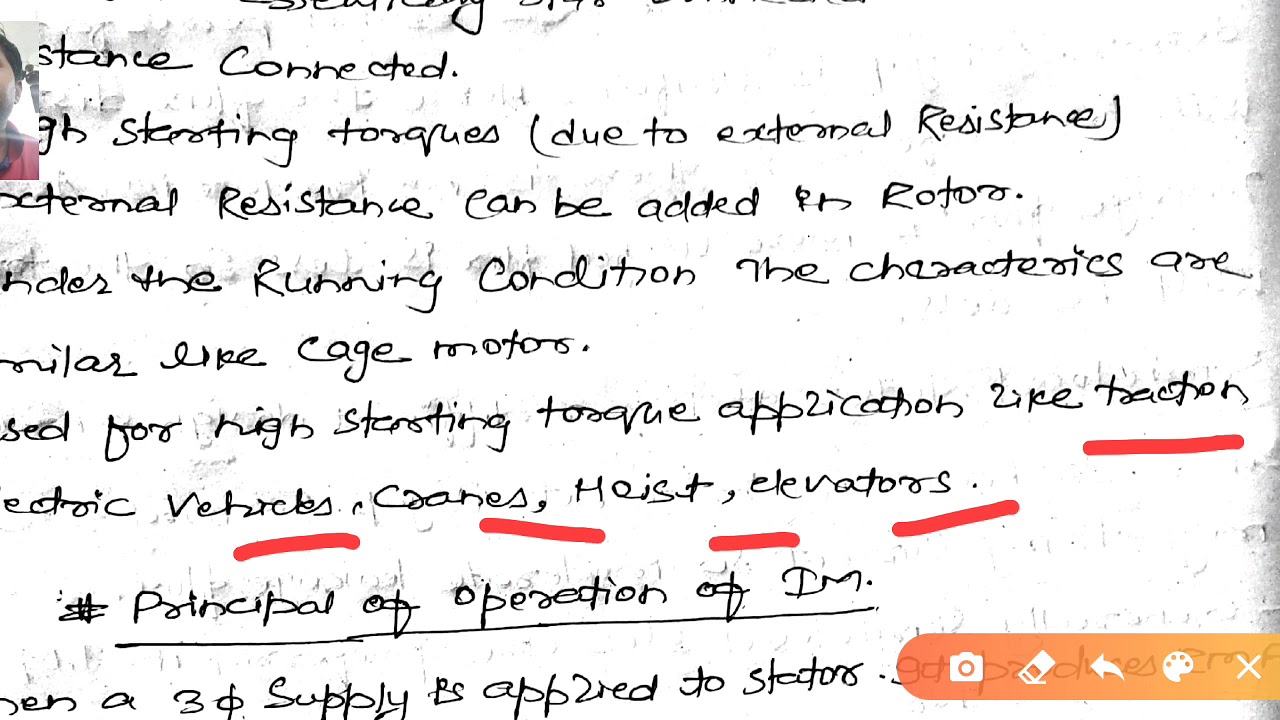 stance Connected.
gh starting torques (due to external Resistance)
xternal Resistance can be added in Rotor.
nder the Running Condition The characterics are
milar like cage motor.
sed for high starting torque application like traction
ectric Vehicles, Cranes, Hoist, elevators.
# Principal of operation of IM.
hen a 3φ Supply is applied to stator.